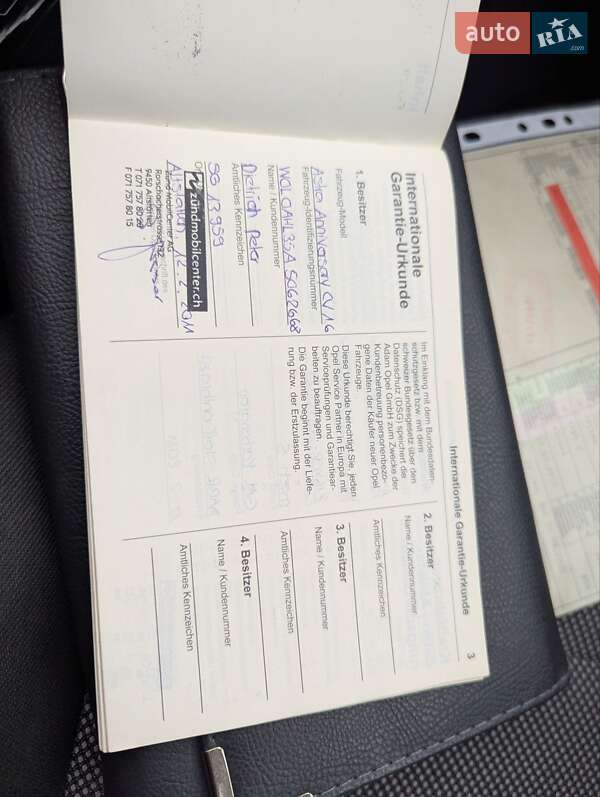 auto RIA .com
Internationale Garantie-Urkunde 3
Internationale
Garantie-Urkunde
1. Besitzer
Fahrzeug-Modell
Astra Anniversary CV 1.6
Fahrzeug-Identifizierungsnummer
Name / Kundennummer
Dietrich Peter
Amtliches Kennzeichen
SG
zündmobilcenter.ch
Altstätten
2011
Zünd MobilCenter AG
9450 Altstätten
T 071 757 80
F 071 757 80 15
Im Einklang mit dem Bundesdaten-
schutzgesetz bzw. mit dem
schweizer Bundesgesetz über den
Datenschutz (DSG) speichert die
Adam Opel GmbH zum Zwecke der
Kundenbetreuung personenbezo-
gene Daten der Käufer neuer Opel
Fahrzeuge.
Diese Urkunde berechtigt Sie, jeden
Opel Service Partner in Europa mit
Serviceprüfungen und Garantiear-
beiten zu beauftragen.
Die Garantie beginnt mit der Liefe-
rung bzw. der Erstzulassung.
2. Besitzer
Name / Kundennummer
Amtliches Kennzeichen
3. Besitzer
Name / Kundennummer
Amtliches Kennzeichen
4. Besitzer
Name / Kundennummer
Amtliches Kennzeichen